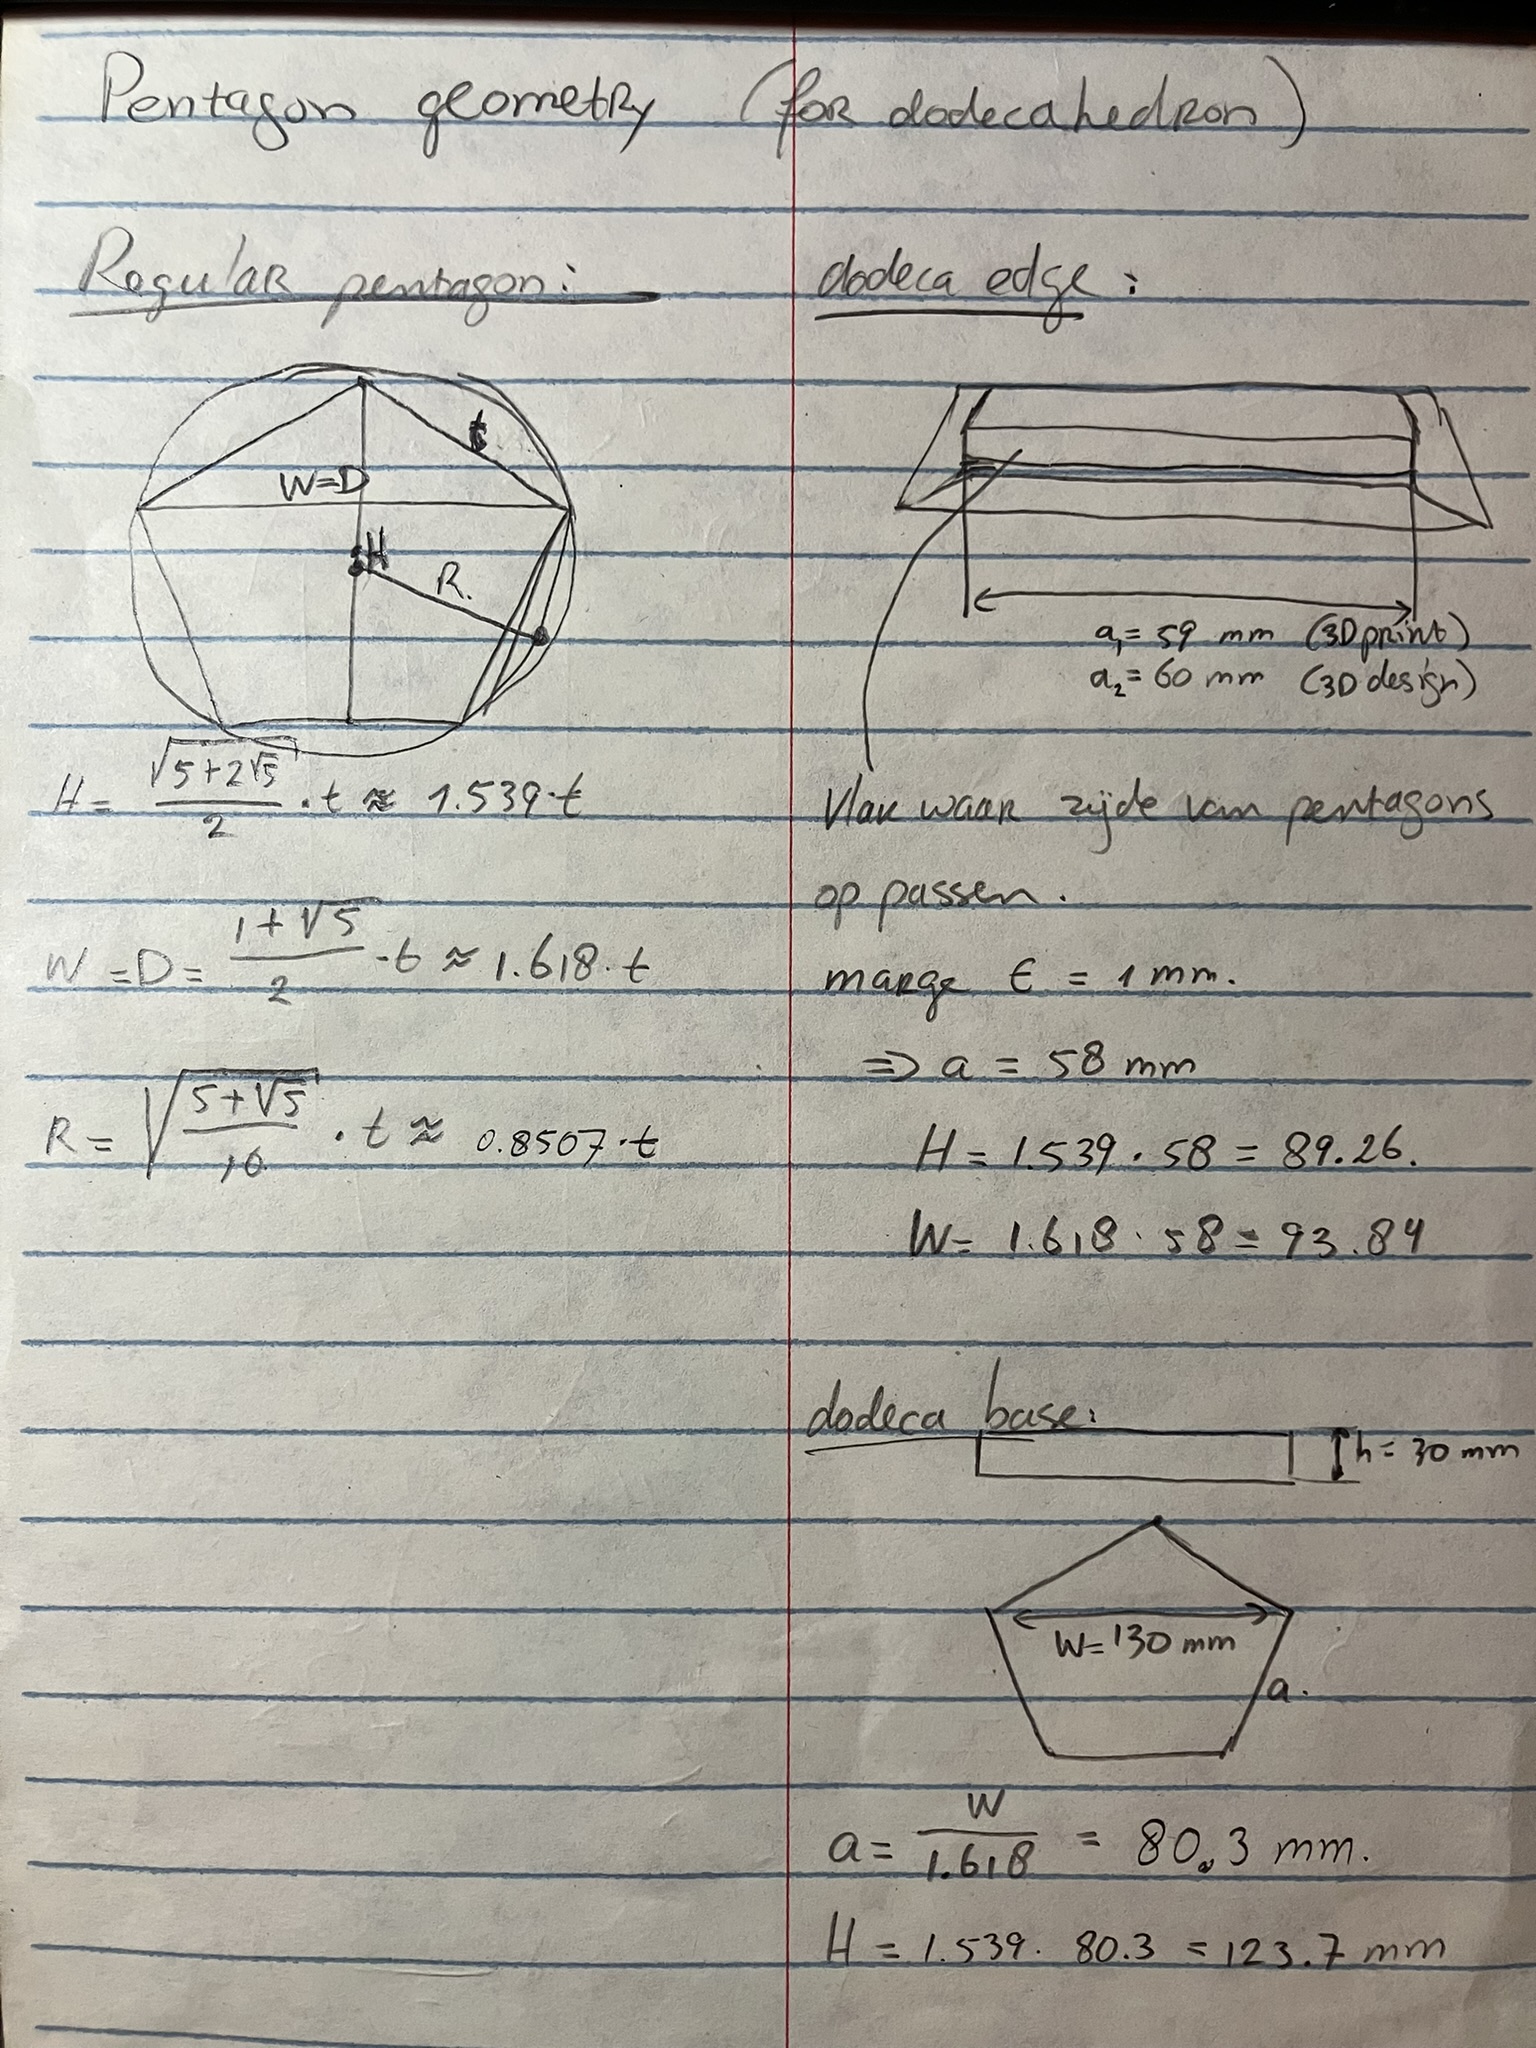 Pentagon geometry (for dodecahedron)
Regular pentagon:
t
W=D
H
R.
H = √(5+2√5)/2 · t ≈ 1.539·t
W = D = (1+√5)/2 · t ≈ 1.618·t
R = √((5+√5)/10) · t ≈ 0.8507·t
dodeca edge:
a₁ = 59 mm (3D print)
a₂ = 60 mm (3D design)
Vlak waar zijde van pentagons
op passen.
marge ϵ = 1 mm.
⇒ a = 58 mm
H = 1.539 · 58 = 89.26.
W = 1.618 · 58 = 93.84
dodeca base:
h = 30 mm
W = 130 mm
a.
a = W/1.618 = 80.3 mm.
H = 1.539 · 80.3 = 123.7 mm